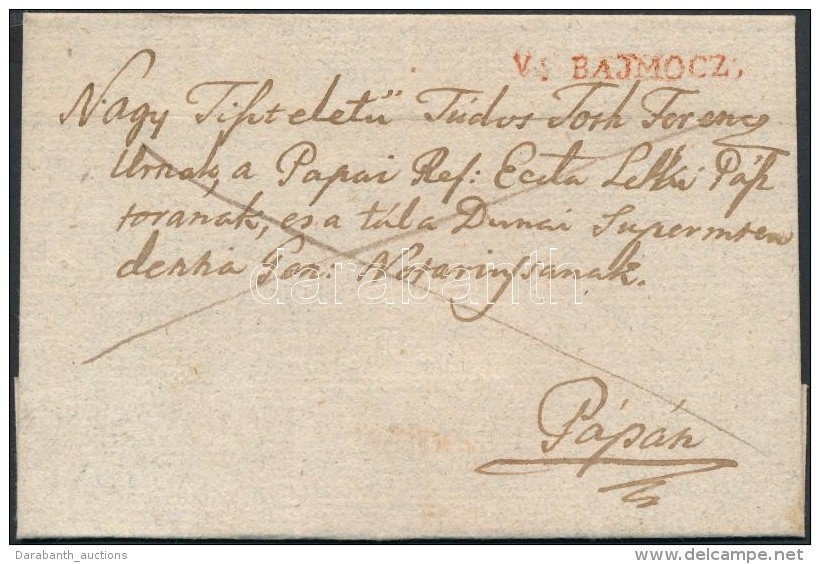 V. BAJMOCZ.
Nagy Tiszteletű Túdos Toth Ferencz
Urnak, a Pápai Ref: Eccla Lelki Pász
torának, es a túl a Dunai Superinten
dentia Gen: Notariussanak.
darabanth
Pápán
Darabanth_auctions
delcampe.net